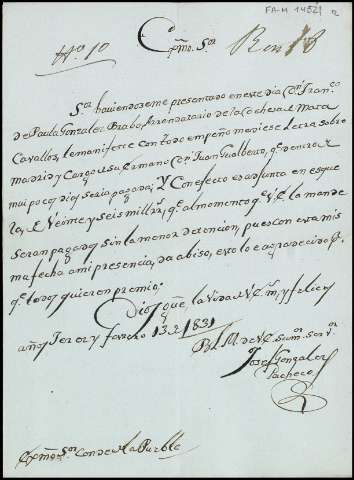 FA-M 1452/ 2
Nº 10
Exmo. Sor.
Sor. haviendoseme presentado en este dia Dn. Franco.
de Paula Gonzalez Brabo, Arrendatario de la Cochera
Cavallos, le manifeste con todo empeño me diese Letra sobre
Madrid y Cargo a su Ermano Dn. Juan Gualberto, qe. dentro de
mui pocos dias seria pagada; Y Con efecto es adjunta en esqe
la, de Veinte y seis mill rs. qe. al momento qe. V.E. la mande
seran pagados sin la menor detencion, pues con esta mis
ma fecha a mi presencia, da abiso, esto lo e agradecido pr.
qe. todos quieren premio;
Dios gue. la Vida de V.E. ms. y felices
años Jerez y febrero 13 de 1831
B.L.M. de V.E. su mor. servr.
Jose Gonzalez
Pacheco
Exmo. Sor. Conde de la Puebla